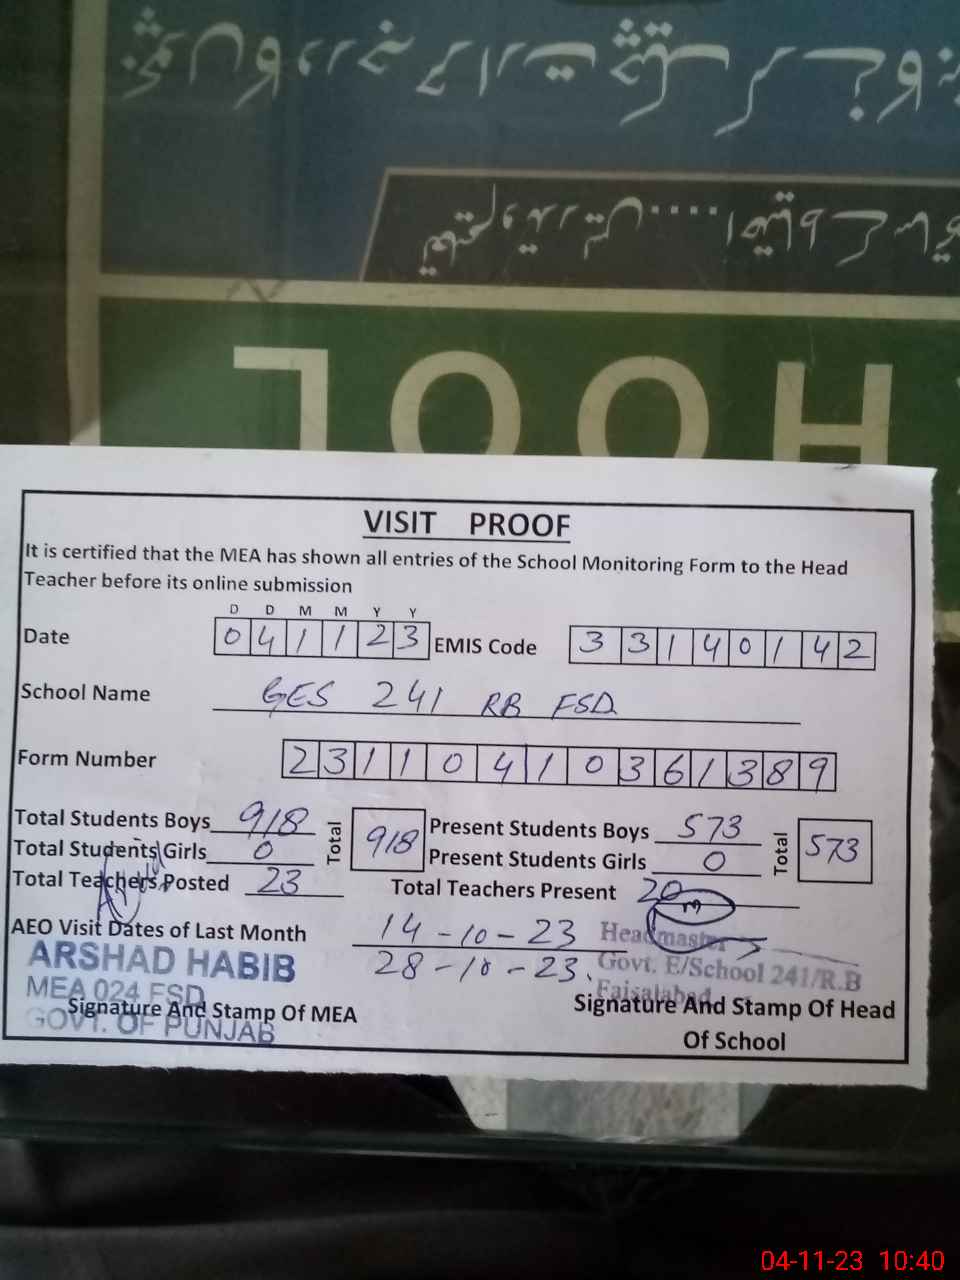 HOOL
VISIT PROOF
It is certified that the MEA has shown all entries of the School Monitoring Form to the Head
Teacher before its online submission
D D M M Y Y
Date 041123 EMIS Code 33140142
School Name GES 241 RB FSD
Form Number 23110410361389
Total Students Boys 918 Total 918 Present Students Boys 573 Total 573
Total Students Girls 0 Present Students Girls 0
Total Teachers Posted 23 Total Teachers Present 20
AEO Visit Dates of Last Month 14-10-23
28-10-23
ARSHAD HABIB
MEA 024 FSD
GOVT. OF PUNJAB
Signature And Stamp Of MEA
Headmaster
Govt. E/School 241/R.B
Faisalabad
Signature And Stamp Of Head
Of School
04-11-23 10:40